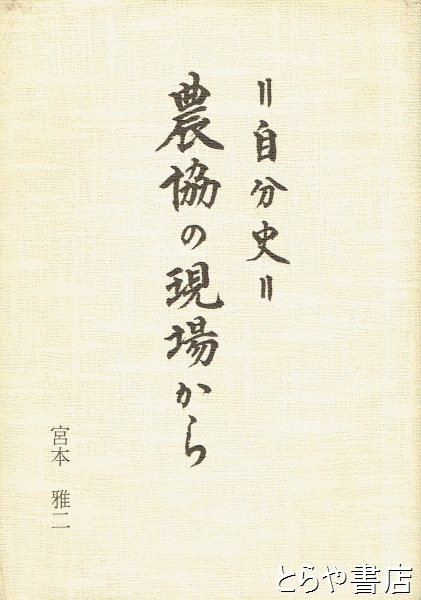 ＝自分史＝
農協の現場から
宮本 雅二
とらや書店